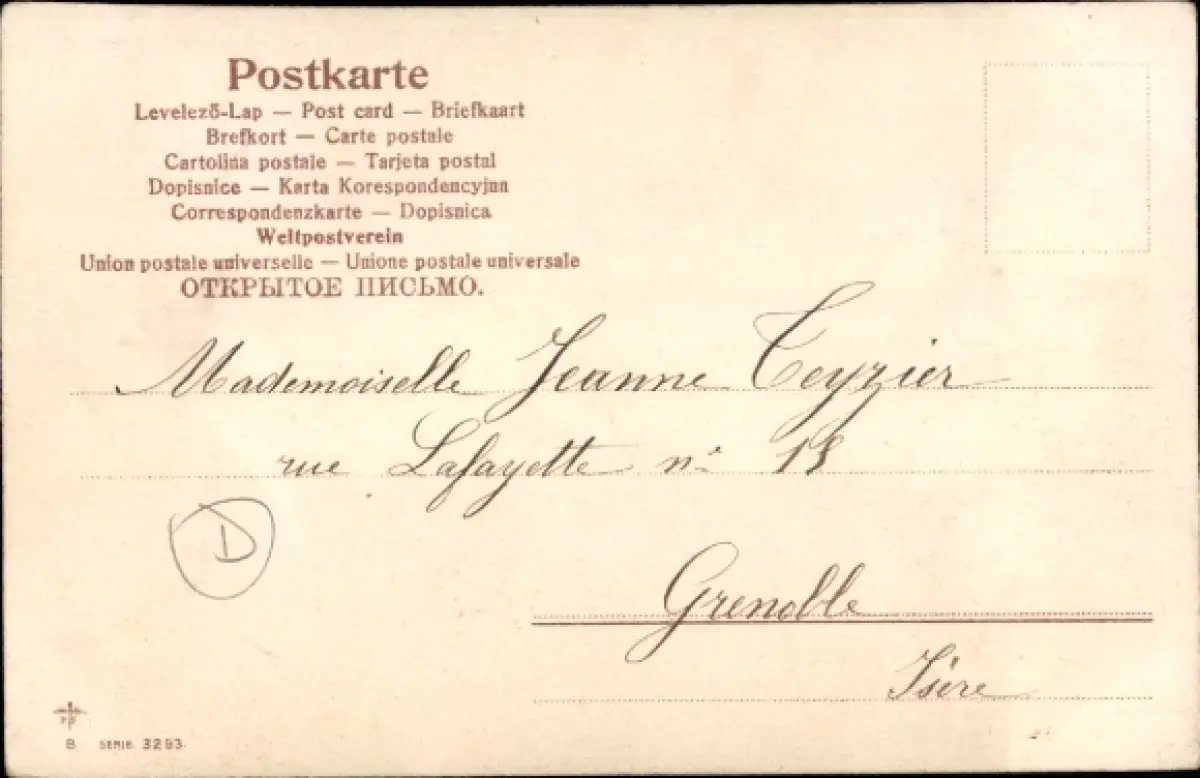 Postkarte
Levelező-Lap — Post card — Briefkaart
Brefkort — Carte postale
Cartolina postale — Tarjeta postal
Dopisnice — Karta Korespondencyjna
Correspondenzkarte — Dopisnica
Weltpostverein
Union postale universelle — Unione postale universale
ОТКРЫТОЕ ПИСЬМО.
Mademoiselle Jeanne Teyzier
rue Lafayette no 18
D
Grenoble
Isère
B. SERIE. 3293.